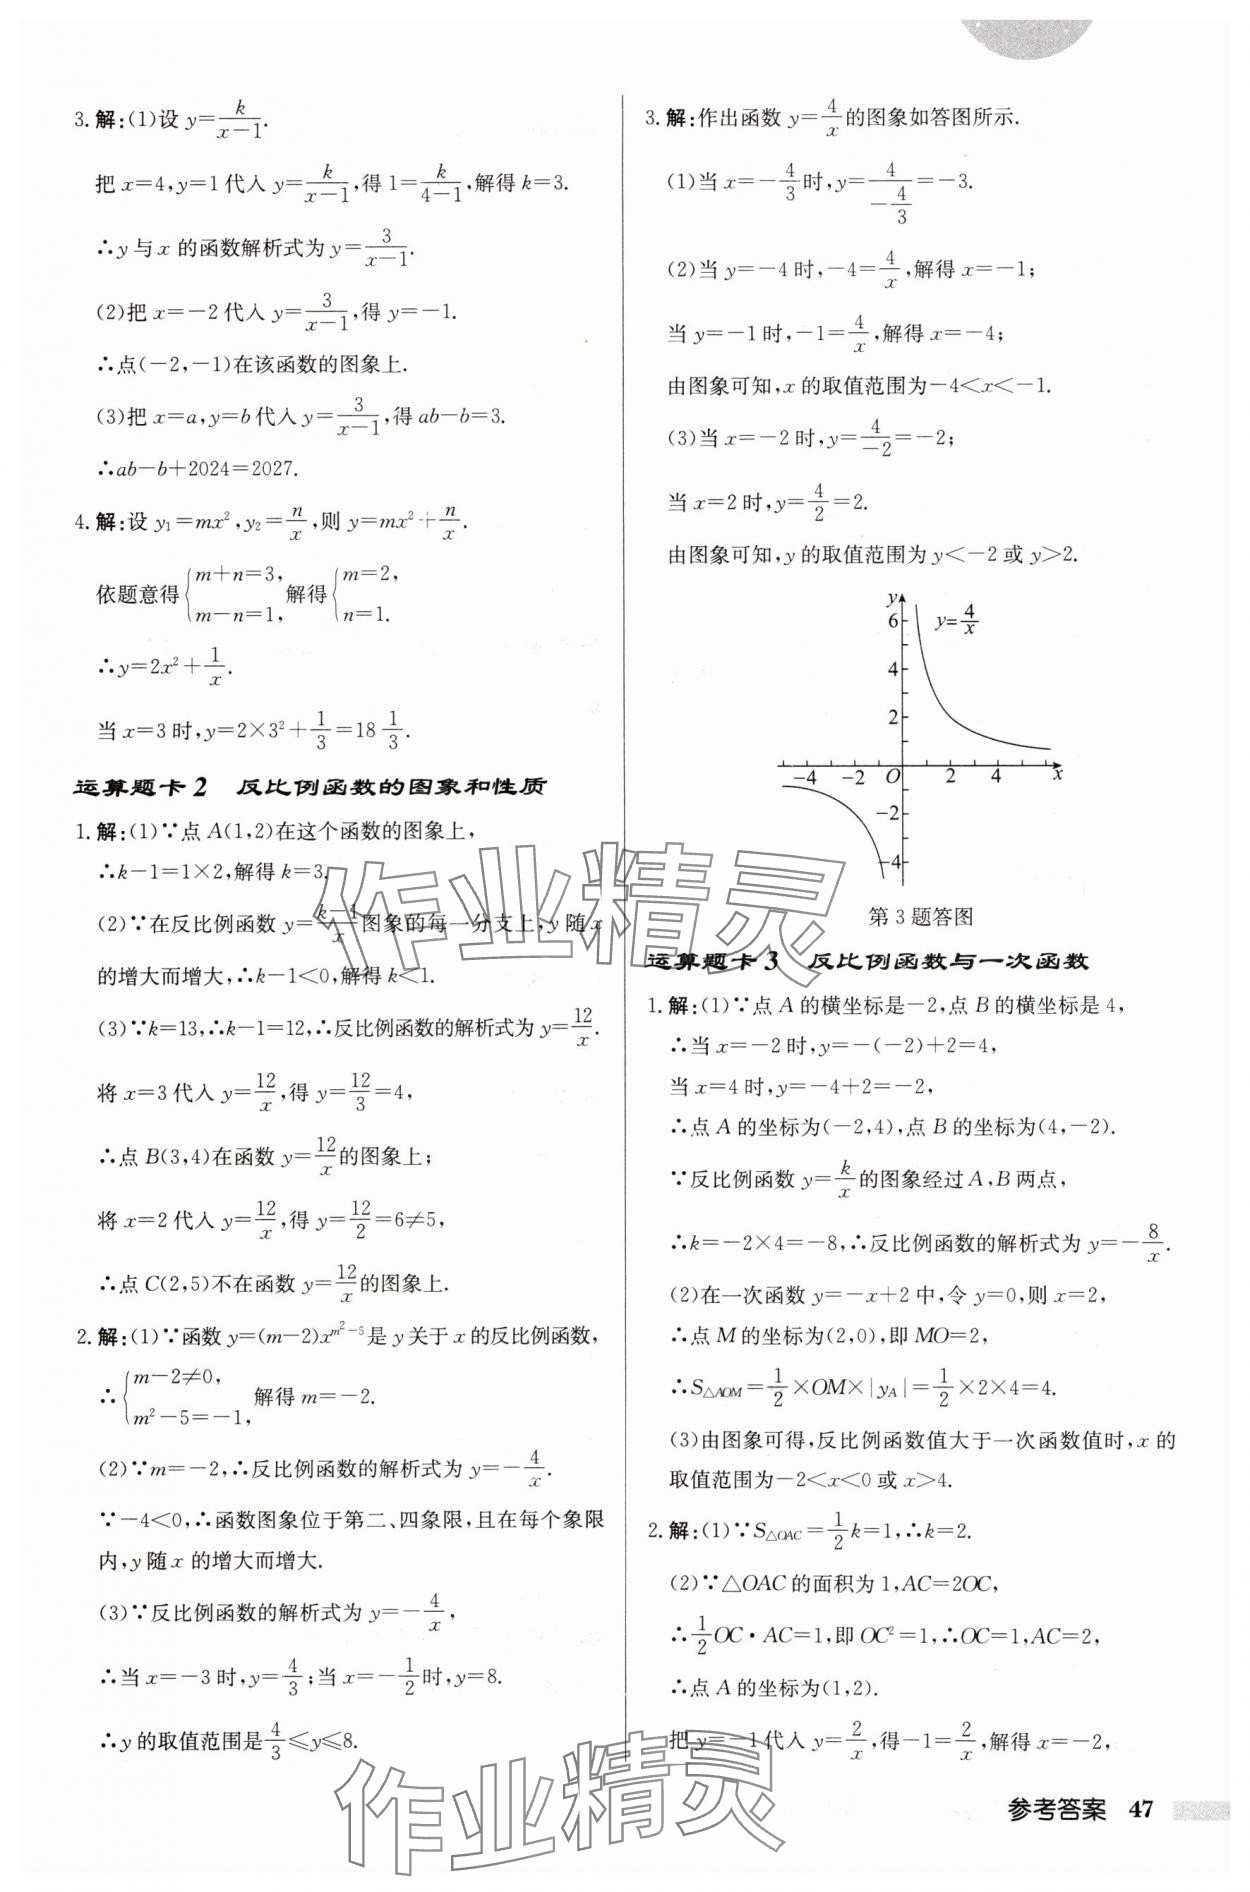 3. 解:(1)设 y=k/(x-1).
把 x=4,y=1代入 y=k/(x-1),得1=k/(4-1),解得k=3.
∴y与x的函数解析式为y=3/(x-1).
(2)把x=-2代入 y=3/(x-1),得 y=-1.
∴点(-2,-1)在该函数的图象上.
(3)把x=a,y=b代入y=3/(x-1),得ab-b=3.
∴ab-b+2024=2027.
4. 解:设 y₁=mx²,y₂=n/x,则 y=mx²+n/x.
依题意得{m+n=3, m-n=1, 解得{m=2, n=1.
∴y=2x²+1/x.
当x=3时,y=2×3²+1/3=18 1/3.
运算题卡2 反比例函数的图象和性质
1. 解:(1)∵点A(1,2)在这个函数的图象上,
∴k-1=1×2,解得k=3.
(2)∵在反比例函数 y=(k-1)/x图象的每一分支上,y随x
的增大而增大,∴k-1<0,解得k<1.
(3)∵k=13,∴k-1=12,∴反比例函数的解析式为y=12/x.
将 x=3代入 y=12/x,得 y=12/3=4,
∴点B(3,4)在函数 y=12/x的图象上;
将 x=2代入 y=12/x,得 y=12/2=6≠5,
∴点C(2,5)不在函数 y=12/x的图象上.
2. 解:(1)∵函数 y=(m-2)x^(m²-5)是y关于x的反比例函数,
∴{m-2≠0, m²-5=-1, 解得m=-2.
(2)∵m=-2,∴反比例函数的解析式为 y=-4/x.
∵-4<0,∴函数图象位于第二、四象限,且在每个象限
内,y随x的增大而增大.
(3)∵反比例函数的解析式为 y=-4/x,
∴当x=-3时,y=4/3;当x=-1/2时,y=8.
∴y的取值范围是4/3≤y≤8.
3. 解:作出函数 y=4/x的图象如答图所示.
(1)当x=-4/3时,y=4/(-4/3)=-3.
(2)当y=-4时,-4=4/x,解得x=-1;
当y=-1时,-1=4/x,解得x=-4;
由图象可知,x的取值范围为-4<x<-1.
(3)当x=-2时,y=4/-2=-2;
当x=2时,y=4/2=2.
由图象可知,y的取值范围为y<-2或y>2.
y
6
y=4/x
4
2
-4 -2 O 2 4 x
-2
-4
第3题答图
运算题卡3 反比例函数与一次函数
1. 解:(1)∵点A的横坐标是-2,点B的横坐标是4,
∴当x=-2时,y=-(-2)+2=4,
当x=4时,y=-4+2=-2,
∴点A的坐标为(-2,4),点B的坐标为(4,-2).
∵反比例函数 y=k/x的图象经过A,B两点,
∴k=-2×4=-8,∴反比例函数的解析式为 y=-8/x.
(2)在一次函数 y=-x+2中,令y=0,则x=2,
∴点M的坐标为(2,0),即MO=2,
∴S△AOM=1/2×OM×|yA|=1/2×2×4=4.
(3)由图象可得,反比例函数值大于一次函数值时,x的
取值范围为-2<x<0或x>4.
2. 解:(1)∵S△OAC=1/2k=1,∴k=2.
(2)∵△OAC的面积为1,AC=2OC,
∴1/2OC·AC=1,即OC²=1,∴OC=1,AC=2,
∴点A的坐标为(1,2).
把y=-1代入 y=2/x,得-1=2/x,解得x=-2,
作业精灵
作业精灵
参考答案 47